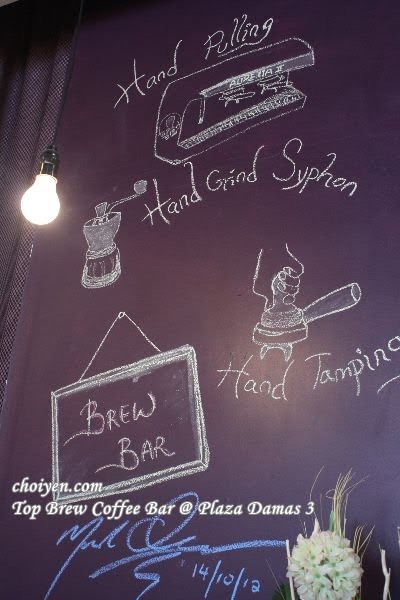 Hand Pulling
AURELIA II
Hand Grind Syphon
Hand Tamping
BREW
BAR
choiyen.com
Top Brew Coffee Bar @ Plaza Damas 3
14/10/12